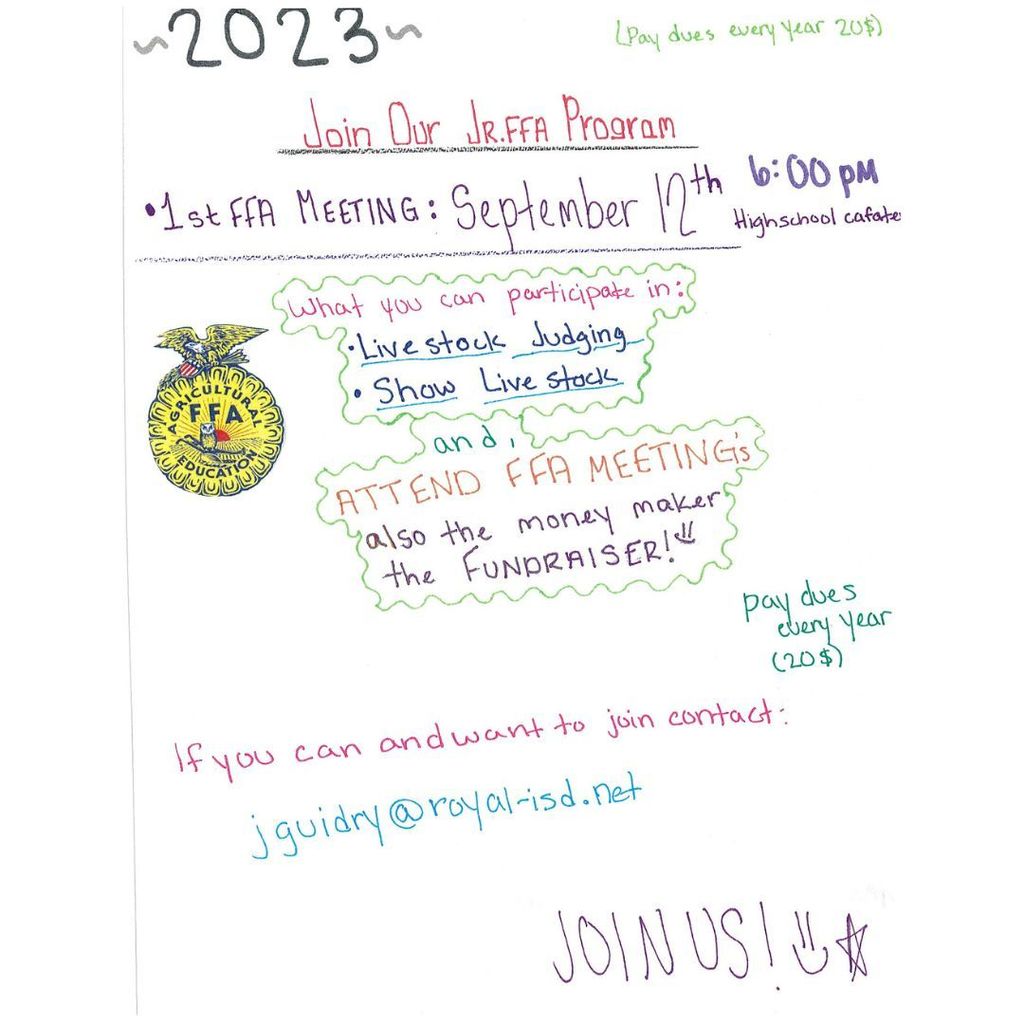 ~2023~
(Pay dues every year 20$)
Join Our JR.FFA Program
•1st FFA MEETING: September 12th 6:00 pM
Highschool cafate
What you can participate in:
•Livestock Judging
• Show Livestock
and,
ATTEND FFA MEETING's
also the money maker
the FUNDRAISER!
AGRICULTURAL
FFA
EDUCATION
pay dues
every year
(20$)
If you can and want to join contact:
jguidry@royal-isd.net
JOIN US!